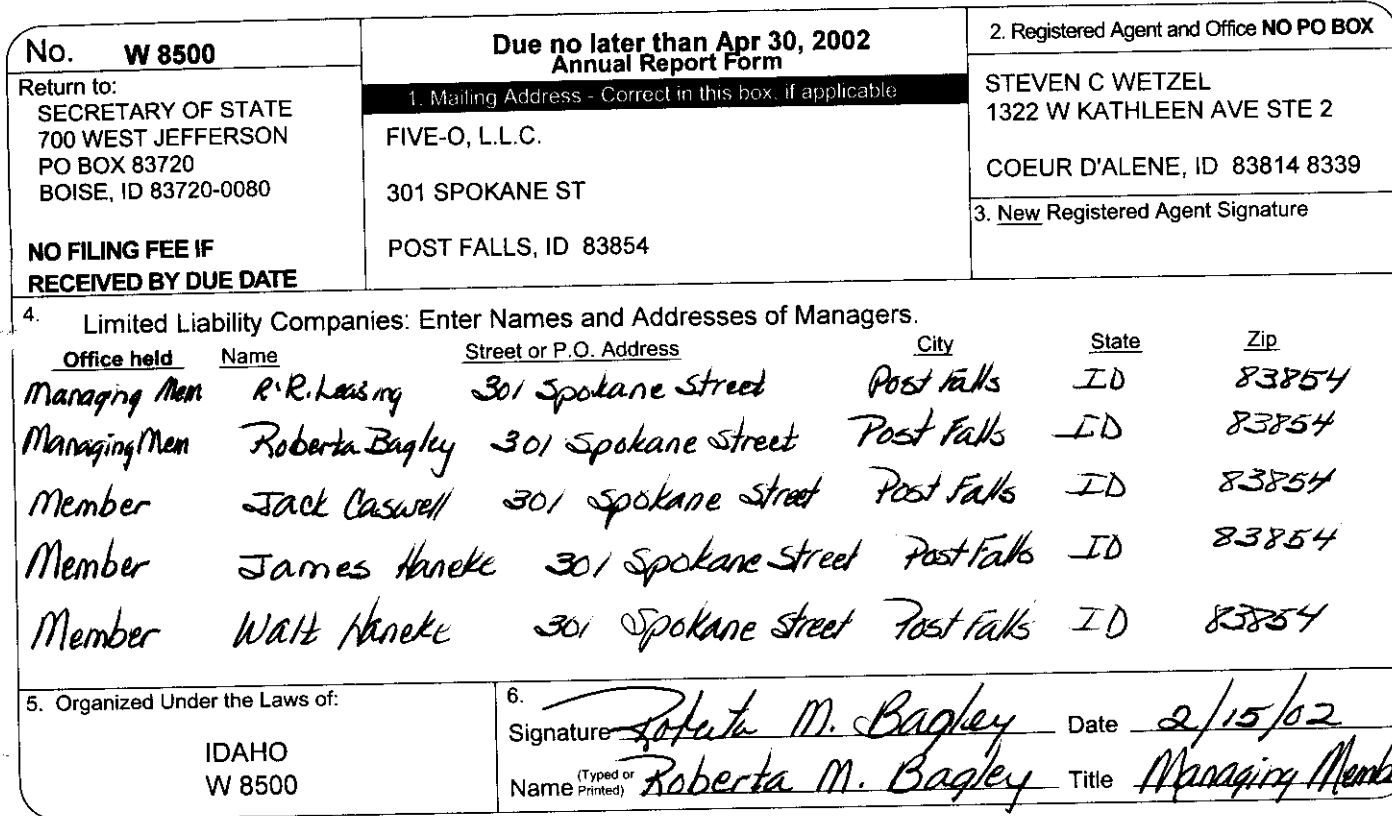 No. W 8500
Return to:
SECRETARY OF STATE
700 WEST JEFFERSON
PO BOX 83720
BOISE, ID 83720-0080
NO FILING FEE IF
RECEIVED BY DUE DATE
Due no later than Apr 30, 2002
Annual Report Form
1. Mailing Address - Correct in this box, if applicable
FIVE-O, L.L.C.
301 SPOKANE ST
POST FALLS, ID 83854
2. Registered Agent and Office NO PO BOX
STEVEN C WETZEL
1322 W KATHLEEN AVE STE 2
COEUR D'ALENE, ID 83814 8339
3. New Registered Agent Signature
4. Limited Liability Companies: Enter Names and Addresses of Managers.
Office held Name Street or P.O. Address City State Zip
Managing Mem R.R. Leasing 301 Spokane Street Post Falls ID 83854
Managing Mem Roberta Bagley 301 Spokane Street Post Falls ID 83854
Member Jack Caswell 301 Spokane Street Post Falls ID 83854
Member James Haneke 301 Spokane Street Post Falls ID 83854
Member Walt Haneke 301 Spokane Street Post Falls ID 83854
5. Organized Under the Laws of:
IDAHO
W 8500
6.
Signature Roberta M. Bagley Date 2/15/02
Name (Typed or Printed) Roberta M. Bagley Title Managing Memb